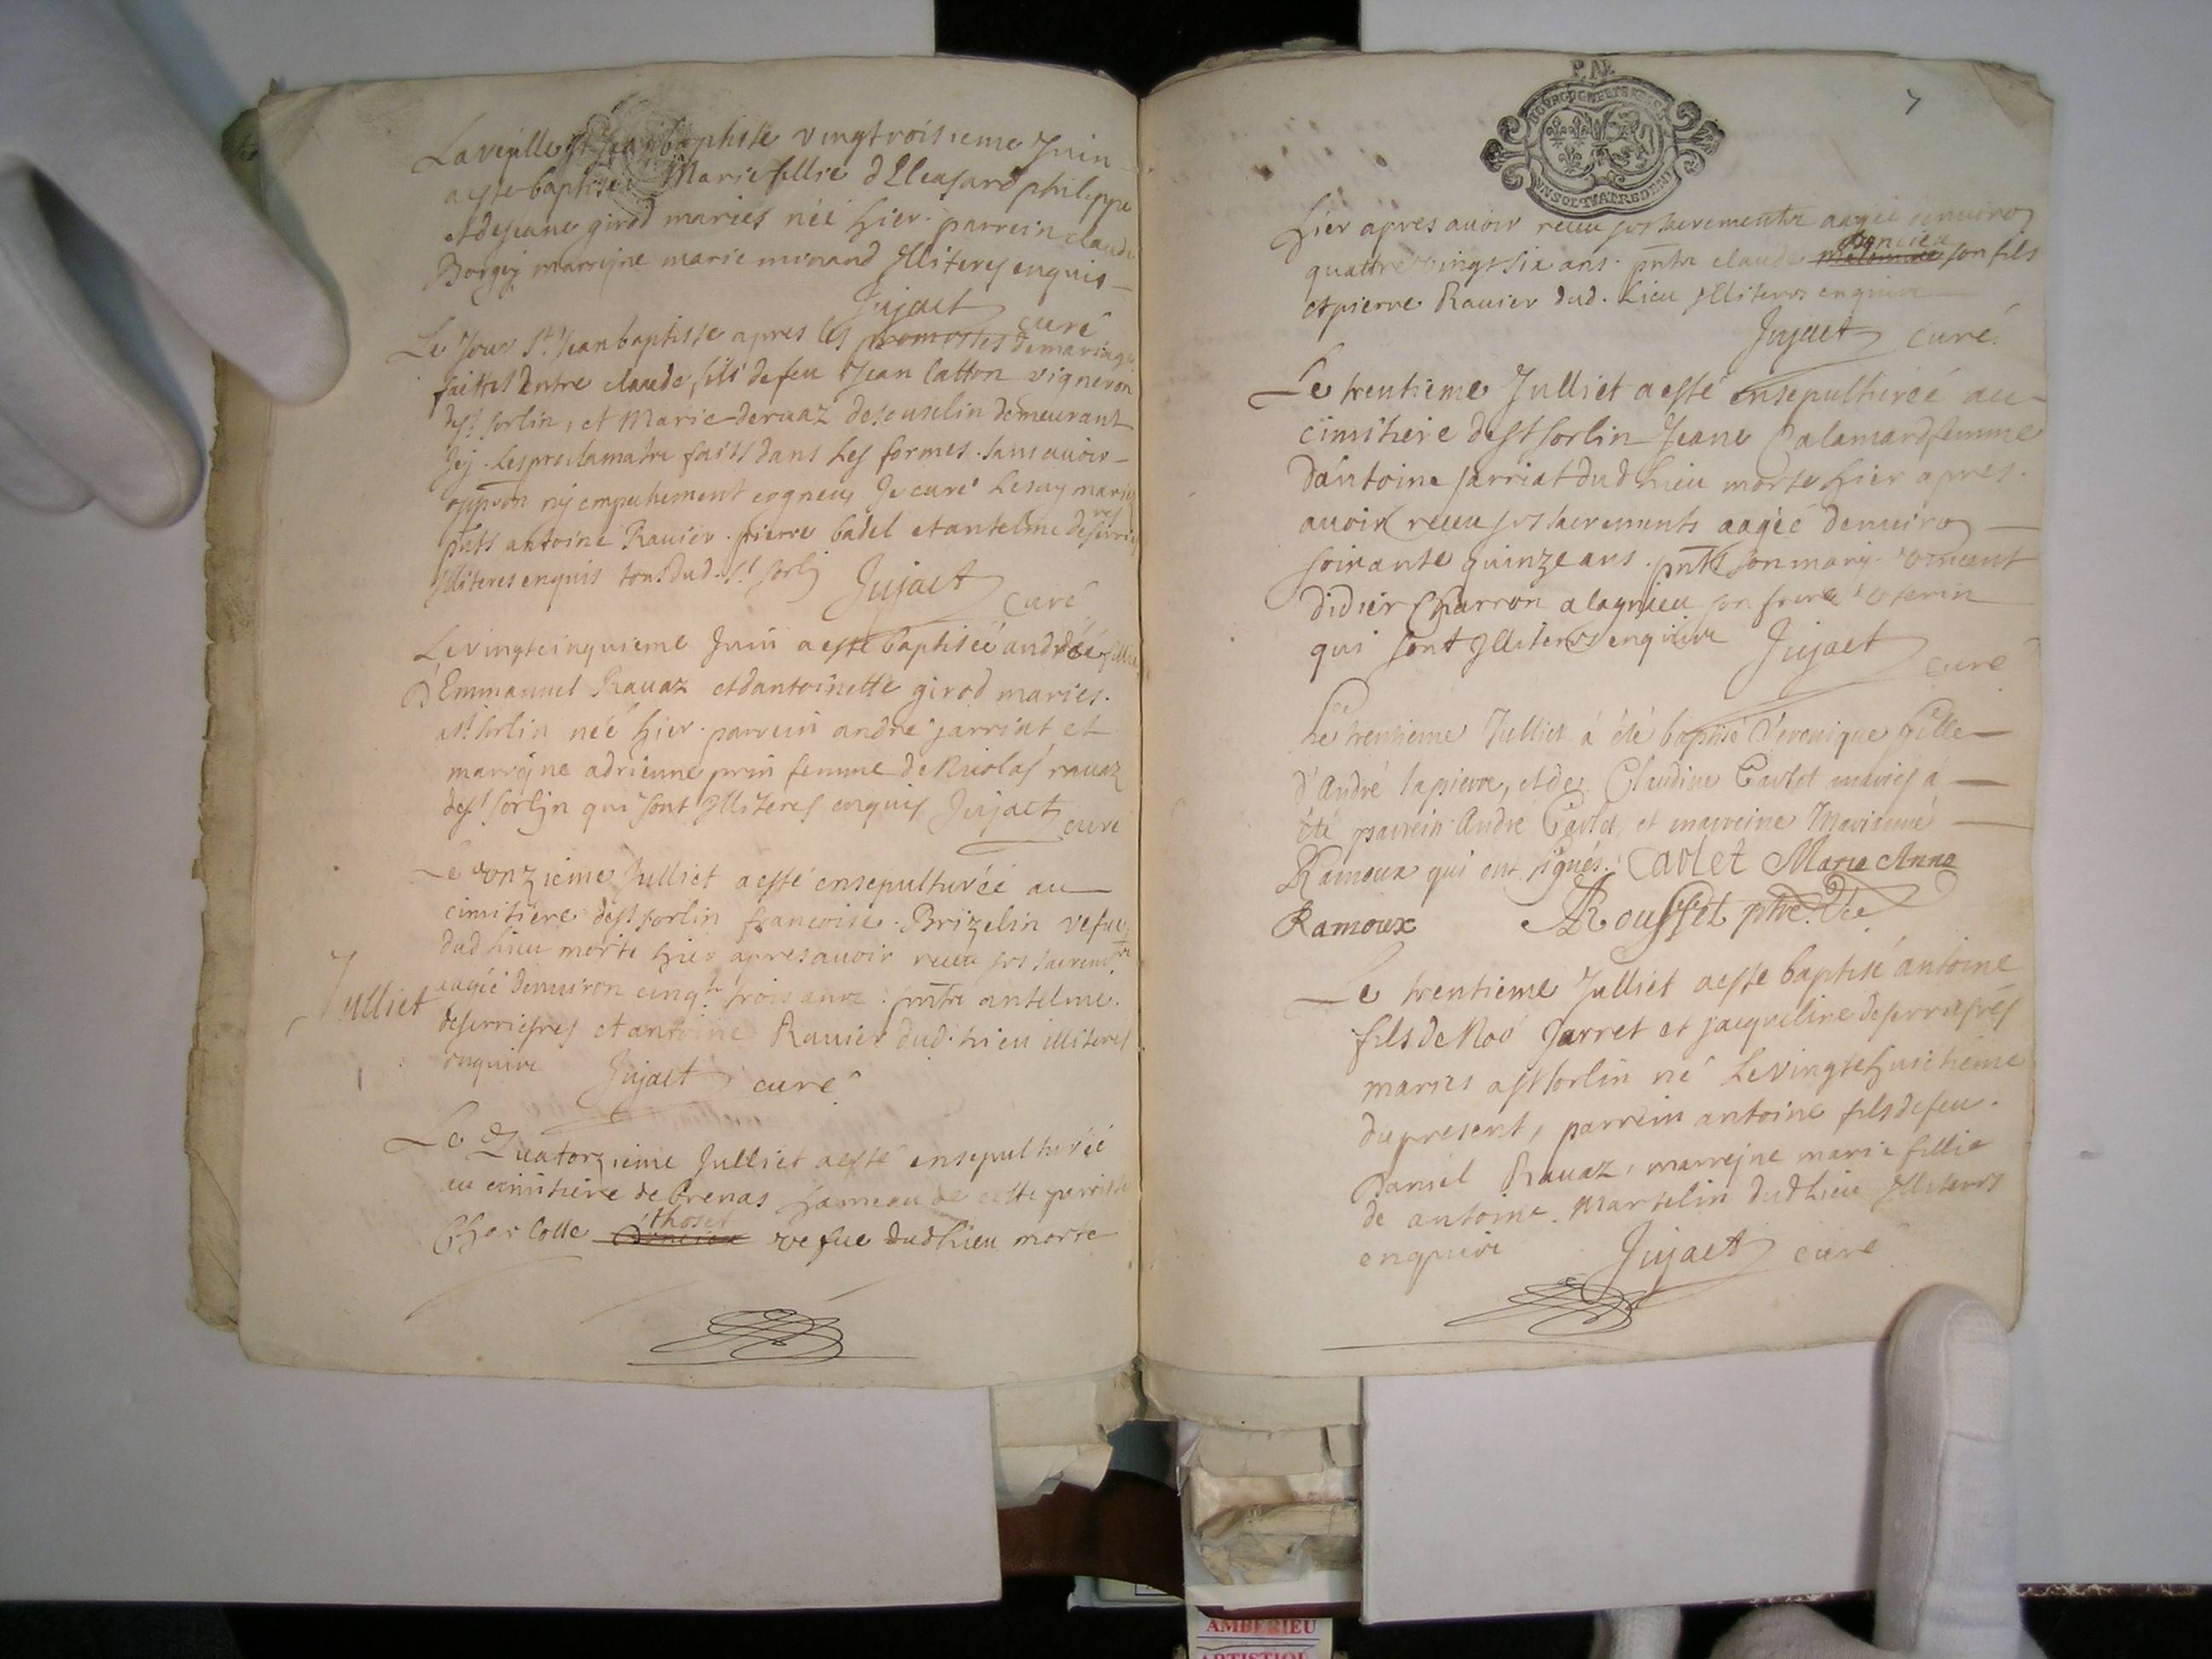 La veille St Jean baptiste vingtroisieme Juin
a esté baptisée Marie fillie d'Eleasard philippe
et de Jeane girod mariés née hier. parrein claude
Borgey marreine marie minand Illiteres enquis
Jujaet curé
Le Jour St Jean baptiste apres les promesses de mariage
faittes entre claude fils de feu Jean Catton vigneron
de St Sorlin, et Marie dervaz de souselin demeurant
Icy. les proclamatns faits dans les formes. sans avoir
oppoon ny empechement cogneu, Je curé les ay mariés
pnts antoine Ravier. pierre badel et antelme deserrieres
Illiteres enquis tous dud. St Sorli Jujaet
curé
Le vingtcinquieme Juin a esté baptisée andrée fillie
d'Emmanuel Ravaz et d'antoinette girod mariés.
a St Sorlin née hier. parrein andré jarriat et
marreine adrienne prin femme de Nicolas ravaz
de St Sorlin qui sont Illiteres enquis Jujaet curé
Le onzieme Julliet a esté ensepulturée au
cimitiere de St Sorlin francoise Brizelin vefue
dud lieu morte hier apres avoir receu ses sacremts
aagée denuiron cinqte trois ans. pnts antelme
Julliet
deserriesres et antoine Ravier dud. lieu illiteres
enquire Jujaet curé
Le Quatorzieme Julliet a esté ensepulturée
au cimitiere de brenas hameau de cette parroisse
thoset
Charlotte vefue dud lieu morte
P. AL
BOURGOGNE ET BRESSE
UN SOL QUATRE DEN
7
hier apres avoir receu ses sacrements aagée denuiron
ancien
quattre vingt six ans. pnts claude son fils
et pierre Ravier dud. lieu Illiteres enquire
Jujaet curé
Le trentieme Julliet a esté ensepulturée au
cimitiere de St Sorlin Jeane Calamard femme
d'antoine Jarriat dud lieu morte hier apres
avoir receu ses sacrements aagée denuiron
soixante quinze ans. pnts son mary. vincent
didier Charron a lagnieu son frere uterin
qui sont Illiteres enquire Jujaet
curé
Le trentieme Julliet à été baptisé Véronique fille
d'André lapierre, et de Claudine Carlet mariés à
été parrein André Carlet, et marreine Marianne
Ramoux qui ont signés. Carlet Marie Anne
Ramoux Rousset ptre Vic
Le trentieme Julliet a esté baptisé antoine
fils de Noé Jarret et jacqueline deserriesres
mariés a St Sorlin né Le vingtehuictieme
du present, parrein antoine fils de feu
Daniel Ravaz, marreine marie fillie
de antoine Marselin dud lieu Illiteres
enquire Jujaet curé
AMBERIEU